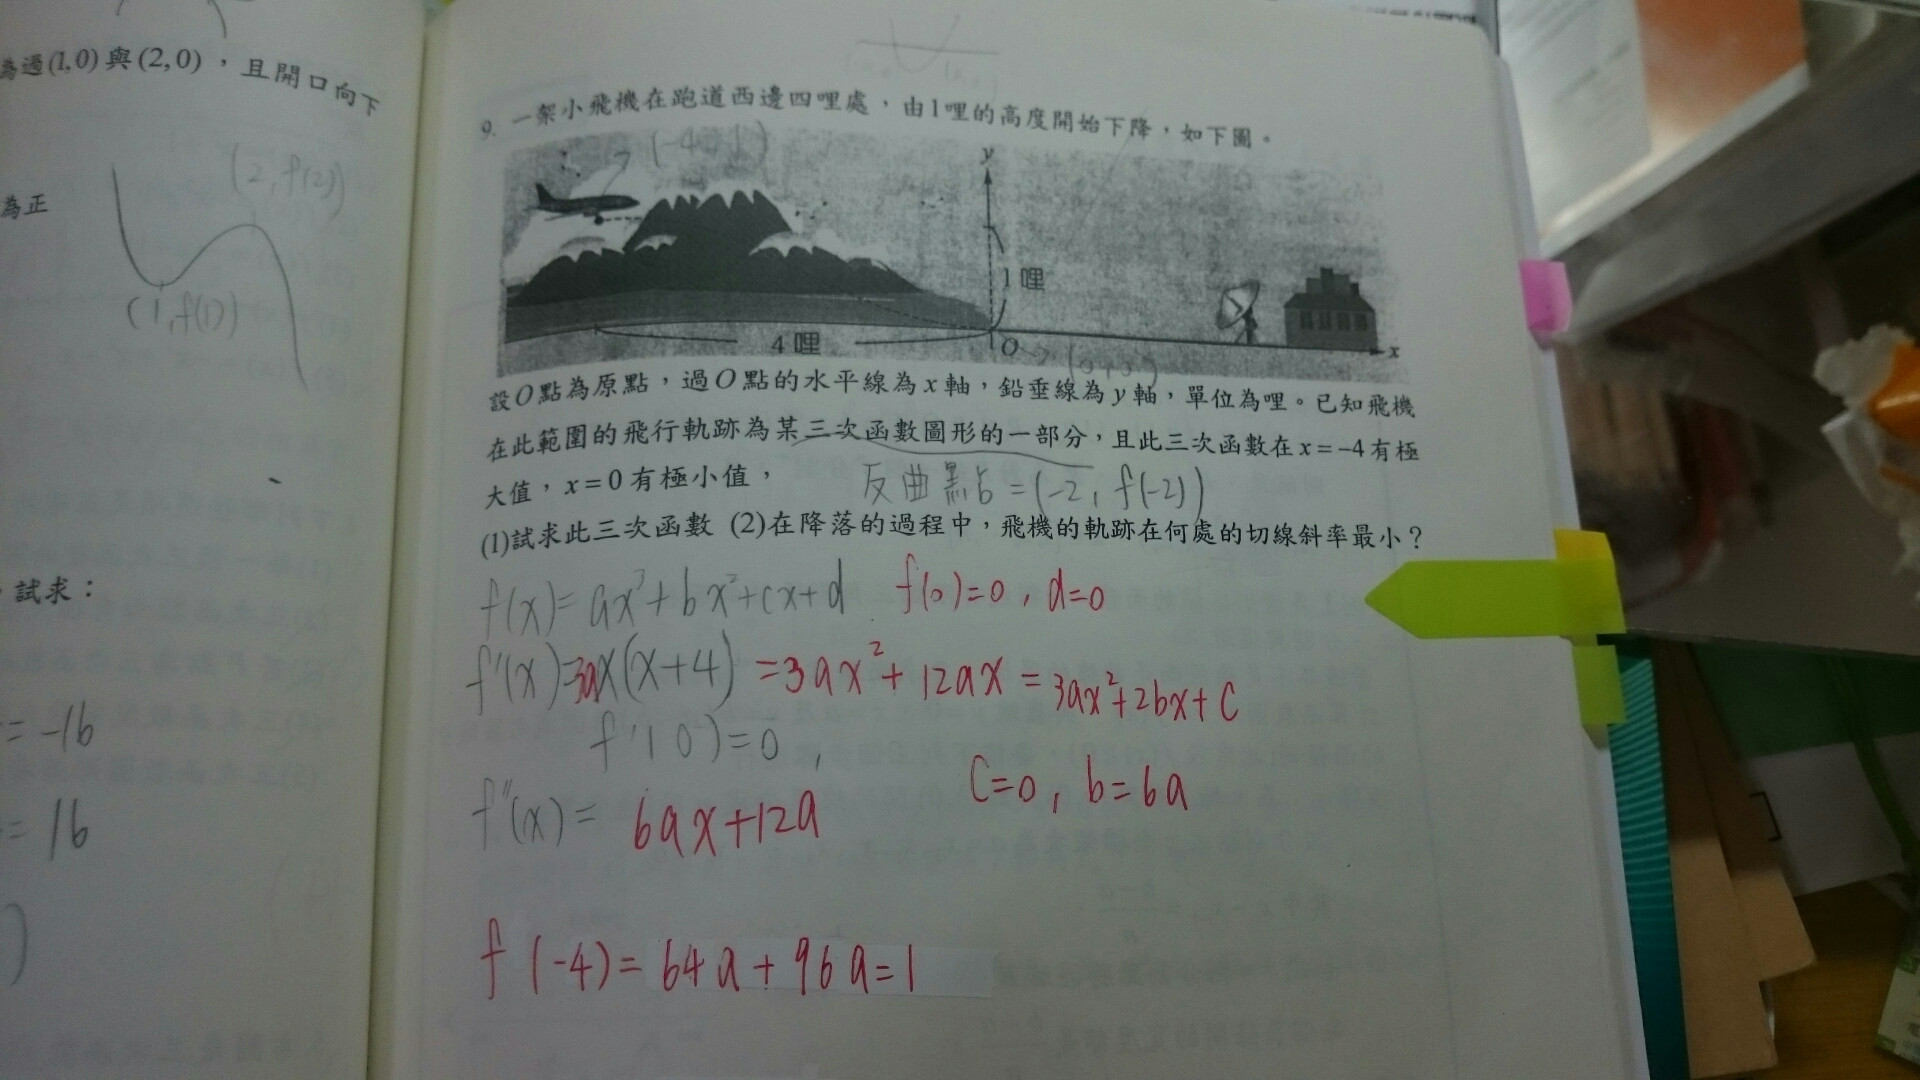 為過(1,0)與(2,0)，且開口向下
(2,f(2))
為正
(1,f(1))
試求：
= -16
= 16
9. 一架小飛機在跑道西邊四哩處，由1哩的高度開始下降，如下圖。
(-4,1)
y
1哩
4哩
O
(0,0)
x
設O點為原點，過O點的水平線為x軸，鉛垂線為y軸，單位為哩。已知飛機
在此範圍的飛行軌跡為某三次函數圖形的一部分，且此三次函數在x=-4有極
大值，x=0有極小值，
反曲點=(-2, f(-2))
(1)試求此三次函數 (2)在降落的過程中，飛機的軌跡在何處的切線斜率最小？
f(x)=ax³+bx²+cx+d f(0)=0, d=0
f'(x)=3ax(x+4) =3ax²+12ax=3ax²+2bx+c
f'(0)=0,
c=0, b=6a
f''(x)= 6ax+12a
f(-4)=64a+96a=1